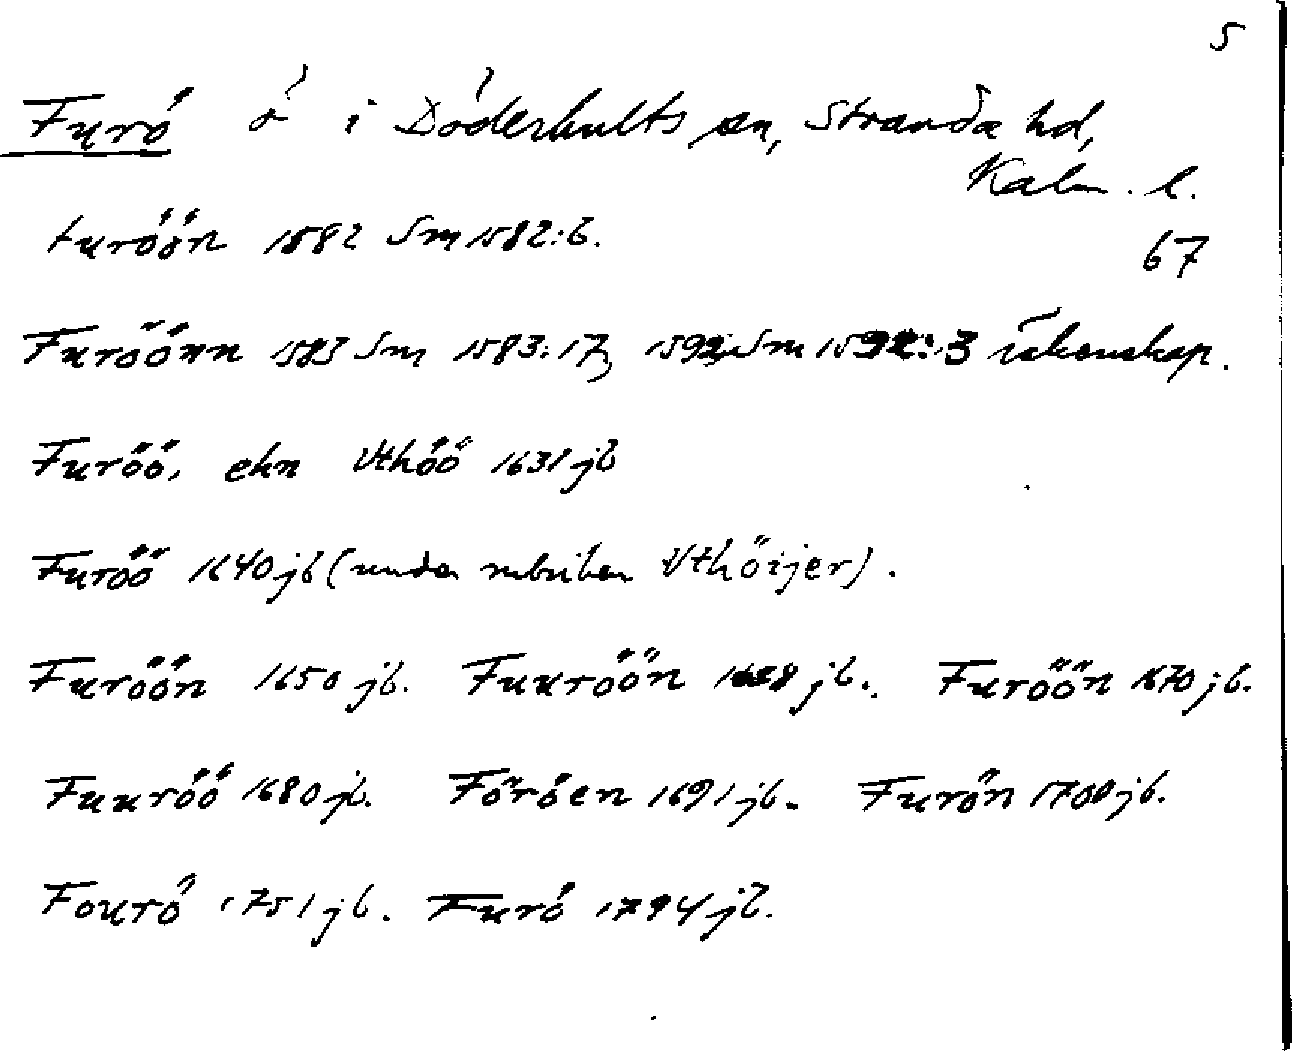 5
Furö ö i Döderhults sn, Stranda hd,
Kalm. l.
furöön 1582 Sm 1582:6.
67
Furöönn 1583 Sm 1583:17, 1592 Sm 1592:3 räkenskap.
Furöö, ehn Vthöö 1631 jb
Furöö 1640 jb (under rubriken Vthöijer).
Furöön 1650 jb. Fuuröön jb. Furöön 1670 jb.
Fuuröö 1680 jb. Föröen 1691 jb. Furön 1700 jb.
Fourö 1751 jb. Furö 1794 jb.